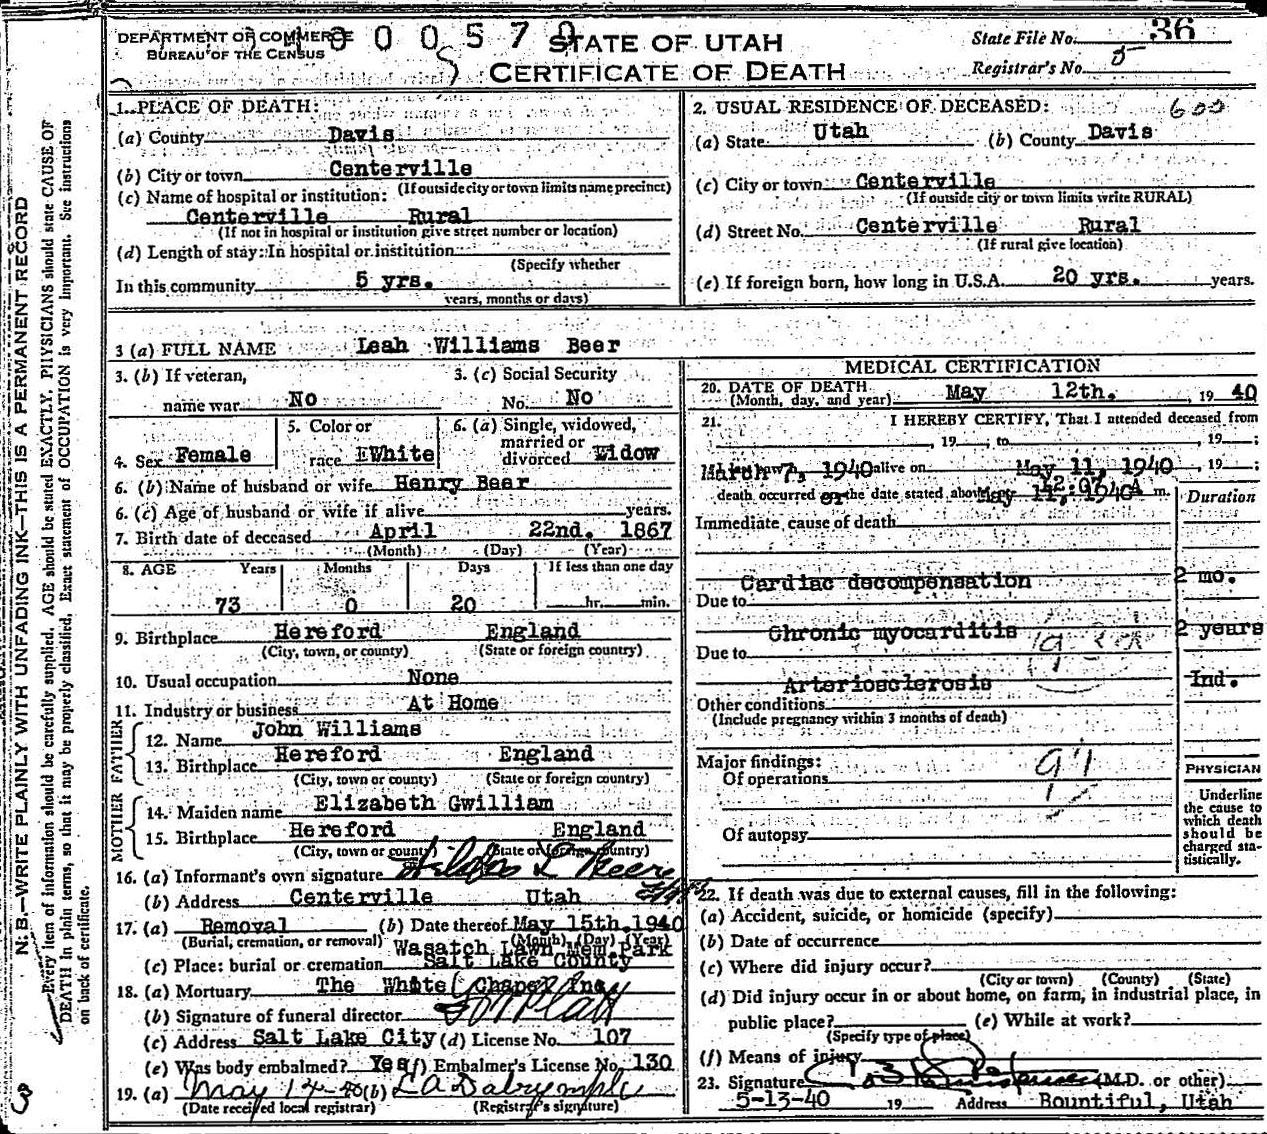 DEPARTMENT OF COMMERCE
BUREAU OF THE CENSUS
000570
STATE OF UTAH
CERTIFICATE OF DEATH
State File No. 36
Registrar's No. 5
1. PLACE OF DEATH:
(a) County Davis
(b) City or town Centerville
(If outside city or town limits name precinct)
(c) Name of hospital or institution:
Centerville Rural
(If not in hospital or institution give street number or location)
(d) Length of stay: In hospital or institution
(Specify whether
In this community 5 yrs.
years, months or days)
2. USUAL RESIDENCE OF DECEASED: 600
(a) State Utah (b) County Davis
(c) City or town Centerville
(If outside city or town limits write RURAL)
(d) Street No. Centerville Rural
(If rural give location)
(e) If foreign born, how long in U.S.A. 20 yrs. years.
3 (a) FULL NAME Leah Williams Beer
3. (b) If veteran,
name war No
3. (c) Social Security
No. No
4. Sex Female
5. Color or
race White
6. (a) Single, widowed,
married or
divorced Widow
6. (b) Name of husband or wife Henry Beer
6. (c) Age of husband or wife if alive years.
7. Birth date of deceased April 22nd. 1867
(Month) (Day) (Year)
8. AGE Years Months Days If less than one day
73 0 20 hr. min.
9. Birthplace Hereford England
(City, town, or county) (State or foreign country)
10. Usual occupation None
11. Industry or business At Home
FATHER
12. Name John Williams
13. Birthplace Hereford England
(City, town or county) (State or foreign country)
MOTHER
14. Maiden name Elizabeth Gwilliam
15. Birthplace Hereford England
(City, town or county) (State or foreign country)
16. (a) Informant's own signature
(b) Address Centerville Utah
17. (a) Removal (b) Date thereof May 15th. 1940
(Burial, cremation, or removal) (Month) (Day) (Year)
Wasatch Lawn Mem. Park
(c) Place: burial or cremation Salt Lake County
18. (a) Mortuary The White Chapel Inc.
(b) Signature of funeral director
(c) Address Salt Lake City (d) License No. 107
(e) Was body embalmed? Yes (f) Embalmer's License No. 130
19. (a) May 14-40 (b) L A Dalrymple
(Date received local registrar) (Registrar's signature)
MEDICAL CERTIFICATION
20. DATE OF DEATH
(Month, day, and year) May 12th. , 19 40
21. I HEREBY CERTIFY, That I attended deceased from
, 19 ; to , 19 ;
March 7, 1940 alive on May 11, 1940 , 19 ;
death occurred on the date stated above m.
Duration
Immediate cause of death
Cardiac decompensation 2 mo.
Due to
Chronic myocarditis 2 years
Due to
Arteriosclerosis Ind.
Other conditions
(Include pregnancy within 3 months of death)
Major findings:
Of operations
Of autopsy
PHYSICIAN
Underline
the cause to
which death
should be
charged sta-
tistically.
22. If death was due to external causes, fill in the following:
(a) Accident, suicide, or homicide (specify)
(b) Date of occurrence
(c) Where did injury occur?
(City or town) (County) (State)
(d) Did injury occur in or about home, on farm, in industrial place, in
public place? (e) While at work?
(Specify type of place)
(f) Means of injury
23. Signature (M.D. or other)
5-13-40 19 Address Bountiful, Utah
N. B.—WRITE PLAINLY WITH UNFADING INK—THIS IS A PERMANENT RECORD
Every item of information should be carefully supplied. AGE should be stated EXACTLY. PHYSICIANS should state CAUSE OF
DEATH in plain terms, so that it may be properly classified. Exact statement of OCCUPATION is very important. See instructions
on back of certificate.